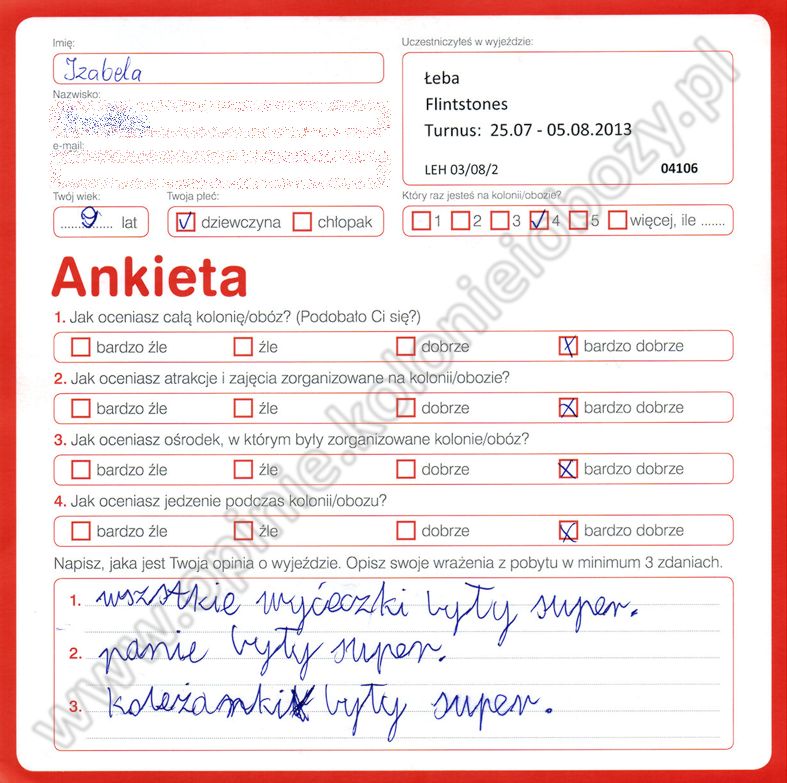 Imię:
Izabela
Uczestniczyłeś w wyjeździe:
Łeba
Flintstones
Turnus: 25.07 - 05.08.2013
LEH 03/08/2 04106
Nazwisko:
e-mail:
Twój wiek:
9 lat
Twoja płeć:
dziewczyna chłopak
Który raz jesteś na kolonii/obozie?
1 2 3 4 5 więcej, ile .......
Ankieta
1. Jak oceniasz całą kolonię/obóz? (Podobało Ci się?)
bardzo źle źle dobrze bardzo dobrze
2. Jak oceniasz atrakcje i zajęcia zorganizowane na kolonii/obozie?
bardzo źle źle dobrze bardzo dobrze
3. Jak oceniasz ośrodek, w którym były zorganizowane kolonie/obóz?
bardzo źle źle dobrze bardzo dobrze
4. Jak oceniasz jedzenie podczas kolonii/obozu?
bardzo źle źle dobrze bardzo dobrze
Napisz, jaka jest Twoja opinia o wyjeździe. Opisz swoje wrażenia z pobytu w minimum 3 zdaniach.
1. wszstkie wyćeczki były super.
2. panie były super.
3. koleżanki były super.
www.opinie.kolonieiobozy.pl